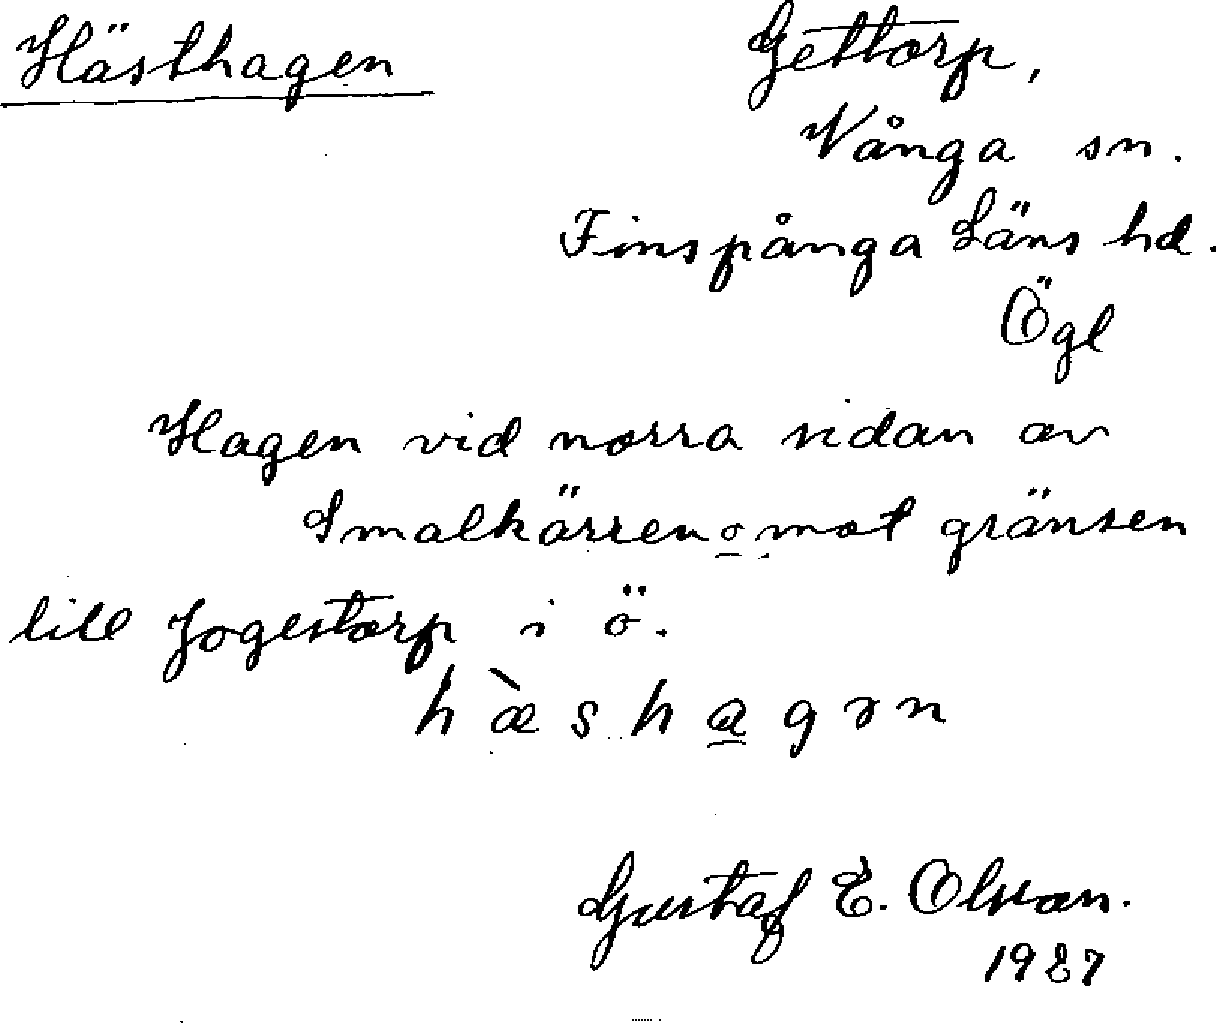 Hästhagen
Gettorp,
Vånga sn.
Finspånga Läns hd.
Ögl
Hagen vid norra sidan av
Smalkärren o mot gränsen
till Jogestorp i ö.
hæ̀shagən
Gustaf E. Olson.
1927